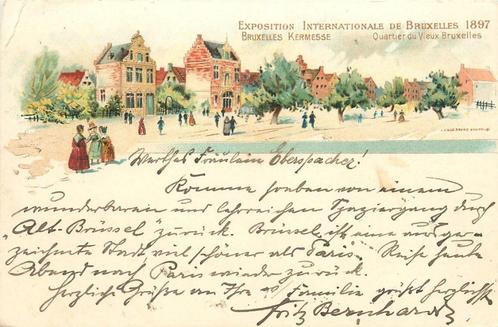 EXPOSITION INTERNATIONALE DE BRUXELLES 1897
BRUXELLES KERMESSE Quartier du Vieux Bruxelles
Werthes Fräulein Eberspacher!
Komme soeben von einem
wunderbaren und lehrreichen Spaziergang durch
"Alt-Brüssel" zurück. Brüssel ist eine ausge-
zeichnete Stadt viel schöner als Paris. Reise heute
Abend nach Paris wieder zurück.
Herzliche Grüße an Ihre Familie grüßt herzlichst
Fritz Bernhardt